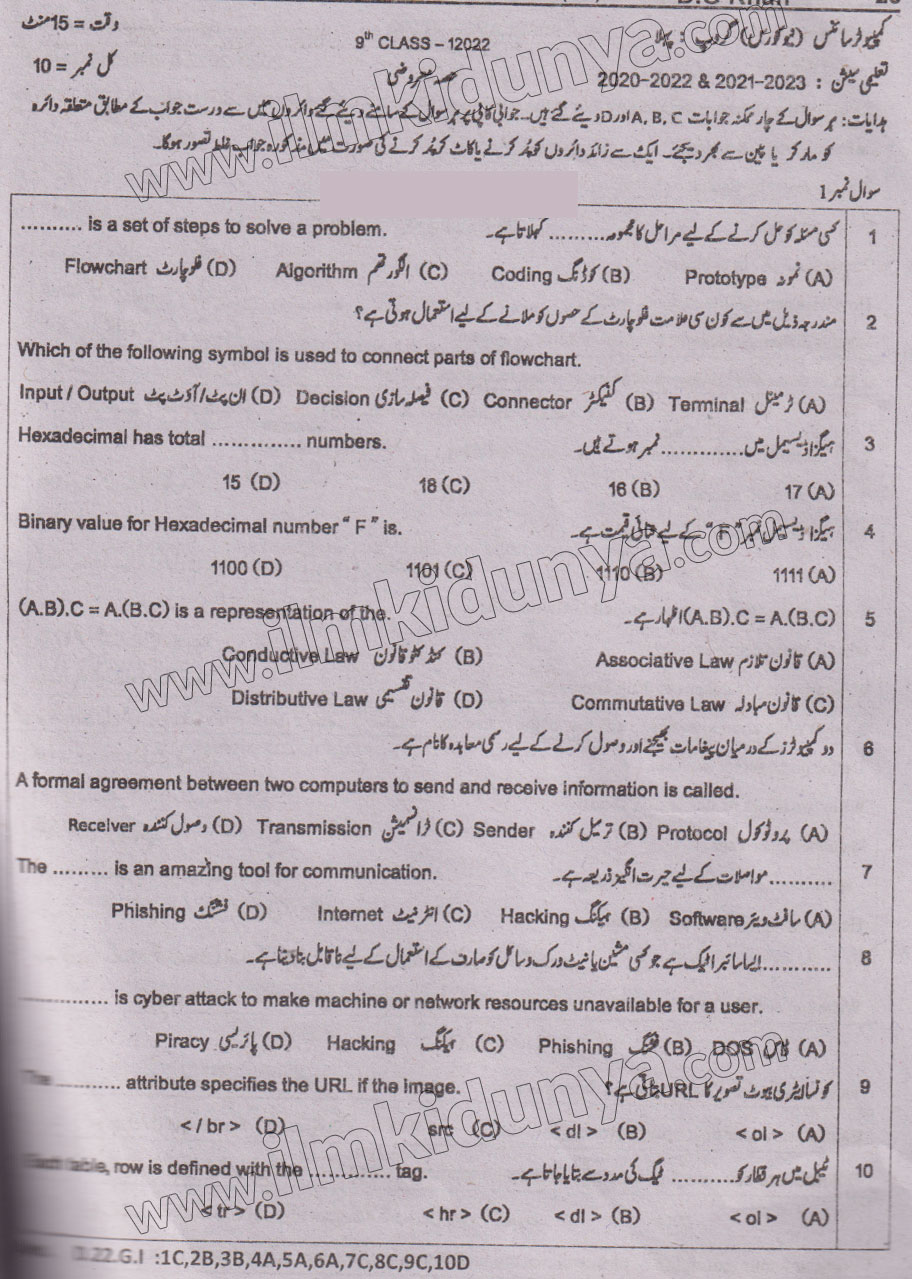 D.G Khan
کمپیوٹر سائنس (نیوکورس) گروپ : پہلا
وقت = 15 منٹ
9th CLASS – 12022
تعلیمی سیشن : 2020-2022 & 2021-2023
حصہ معروضی
کل نمبر = 10
ہدایات: ہر سوال کے چار ممکنہ جوابات A, B, C اور D دیئے گئے ہیں۔ جوابی کاپی پر ہر سوال کے سامنے دیئے گئے دائروں میں سے درست جواب کے مطابق متعلقہ دائرہ
کو مارکر یا پین سے بھر دیجئے۔ ایک سے زائد دائروں کو پُر کرنے یا کاٹ کر پُر کرنے کی صورت میں مذکورہ جواب غلط تصور ہوگا۔
سوال نمبر 1
1 کسی مسئلہ کو حل کرنے کے لیے مراحل کا مجموعہ ......... کہلاتا ہے۔ .......... is a set of steps to solve a problem.
(A) نمونہ Prototype (B) کوڈنگ Coding (C) الگورتھم Algorithm (D) فلوچارٹ Flowchart
2 مندرجہ ذیل میں سے کون سی علامت فلوچارٹ کے حصوں کو ملانے کے لیے استعمال ہوتی ہے؟
Which of the following symbol is used to connect parts of flowchart.
(A) ٹرمینل Terminal (B) کنیکٹر Connector (C) فیصلہ سازی Decision (D) ان پٹ/آؤٹ پٹ Input / Output
3 ہیگزاڈیسیمل میں ............. نمبر ہوتے ہیں۔ Hexadecimal has total .............. numbers.
17 (A) 16 (B) 18 (C) 15 (D)
4 ہیگزاڈیسیمل نمبر "F" کے لیے ثنائی قیمت ہے۔ Binary value for Hexadecimal number " F " is.
1111 (A) 1110 (B) 1101 (C) 1100 (D)
5 (A.B).C = A.(B.C) اظہار ہے۔ (A.B).C = A.(B.C) is a representation of the.
(A) قانون تلازم Associative Law (B) کنڈکٹو قانون Conductive Law
(C) قانون مبادلہ Commutative Law (D) قانون تقسیمی Distributive Law
6 دو کمپیوٹرز کے درمیان پیغامات بھیجنے اور وصول کرنے کے لیے رسمی معاہدہ کا نام ہے۔
A formal agreement between two computers to send and receive information is called.
(A) پروٹوکول Protocol (B) ترسیل کنندہ Sender (C) ٹرانسمیشن Transmission (D) وصول کنندہ Receiver
7 .......... مواصلات کے لیے حیرت انگیز ذریعہ ہے۔ The ......... is an amazing tool for communication.
(A) سافٹ ویئر Software (B) ہیکنگ Hacking (C) انٹرنیٹ Internet (D) فشنگ Phishing
8 ........... ایسا سائبر اٹیک ہے جو کسی مشین یا نیٹ ورک وسائل کو صارف کے استعمال کے لیے ناقابل بنا دیتا ہے۔
.............. is cyber attack to make machine or network resources unavailable for a user.
(A) DOS (B) فشنگ Phishing (C) ہیکنگ Hacking (D) پائریسی Piracy
9 کونسا ایٹری بیوٹ تصویر کا URL بتاتی ہے؟ The .......... attribute specifies the URL if the image.
< ol > (A) < dl > (B) src (C) < / br > (D)
10 ٹیبل میں ہر قطار کو .......... ٹیگ کی مدد سے بتایا جاتا ہے۔ Each table, row is defined with the ............. tag.
< ol > (A) < dl > (B) < hr > (C) < tr > (D)
22.G.I :1C,2B,3B,4A,5A,6A,7C,8C,9C,10D
www.ilmkidunya.com
www.ilmkidunya.com
www.ilmkidunya.com